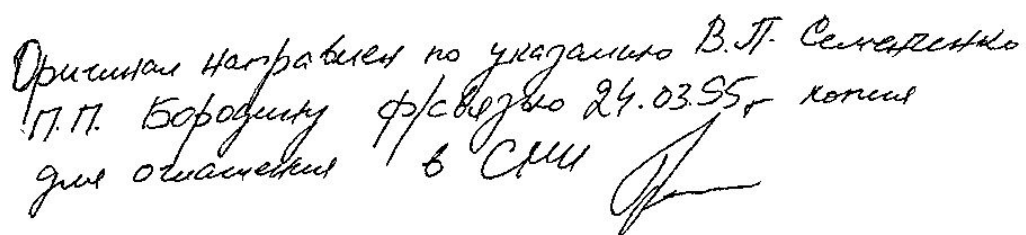 Оригинал направлен по указанию В.П. Семенченко
П.П. Бородину ф/связью 24.03.95г копия
для оглашения в СМИ